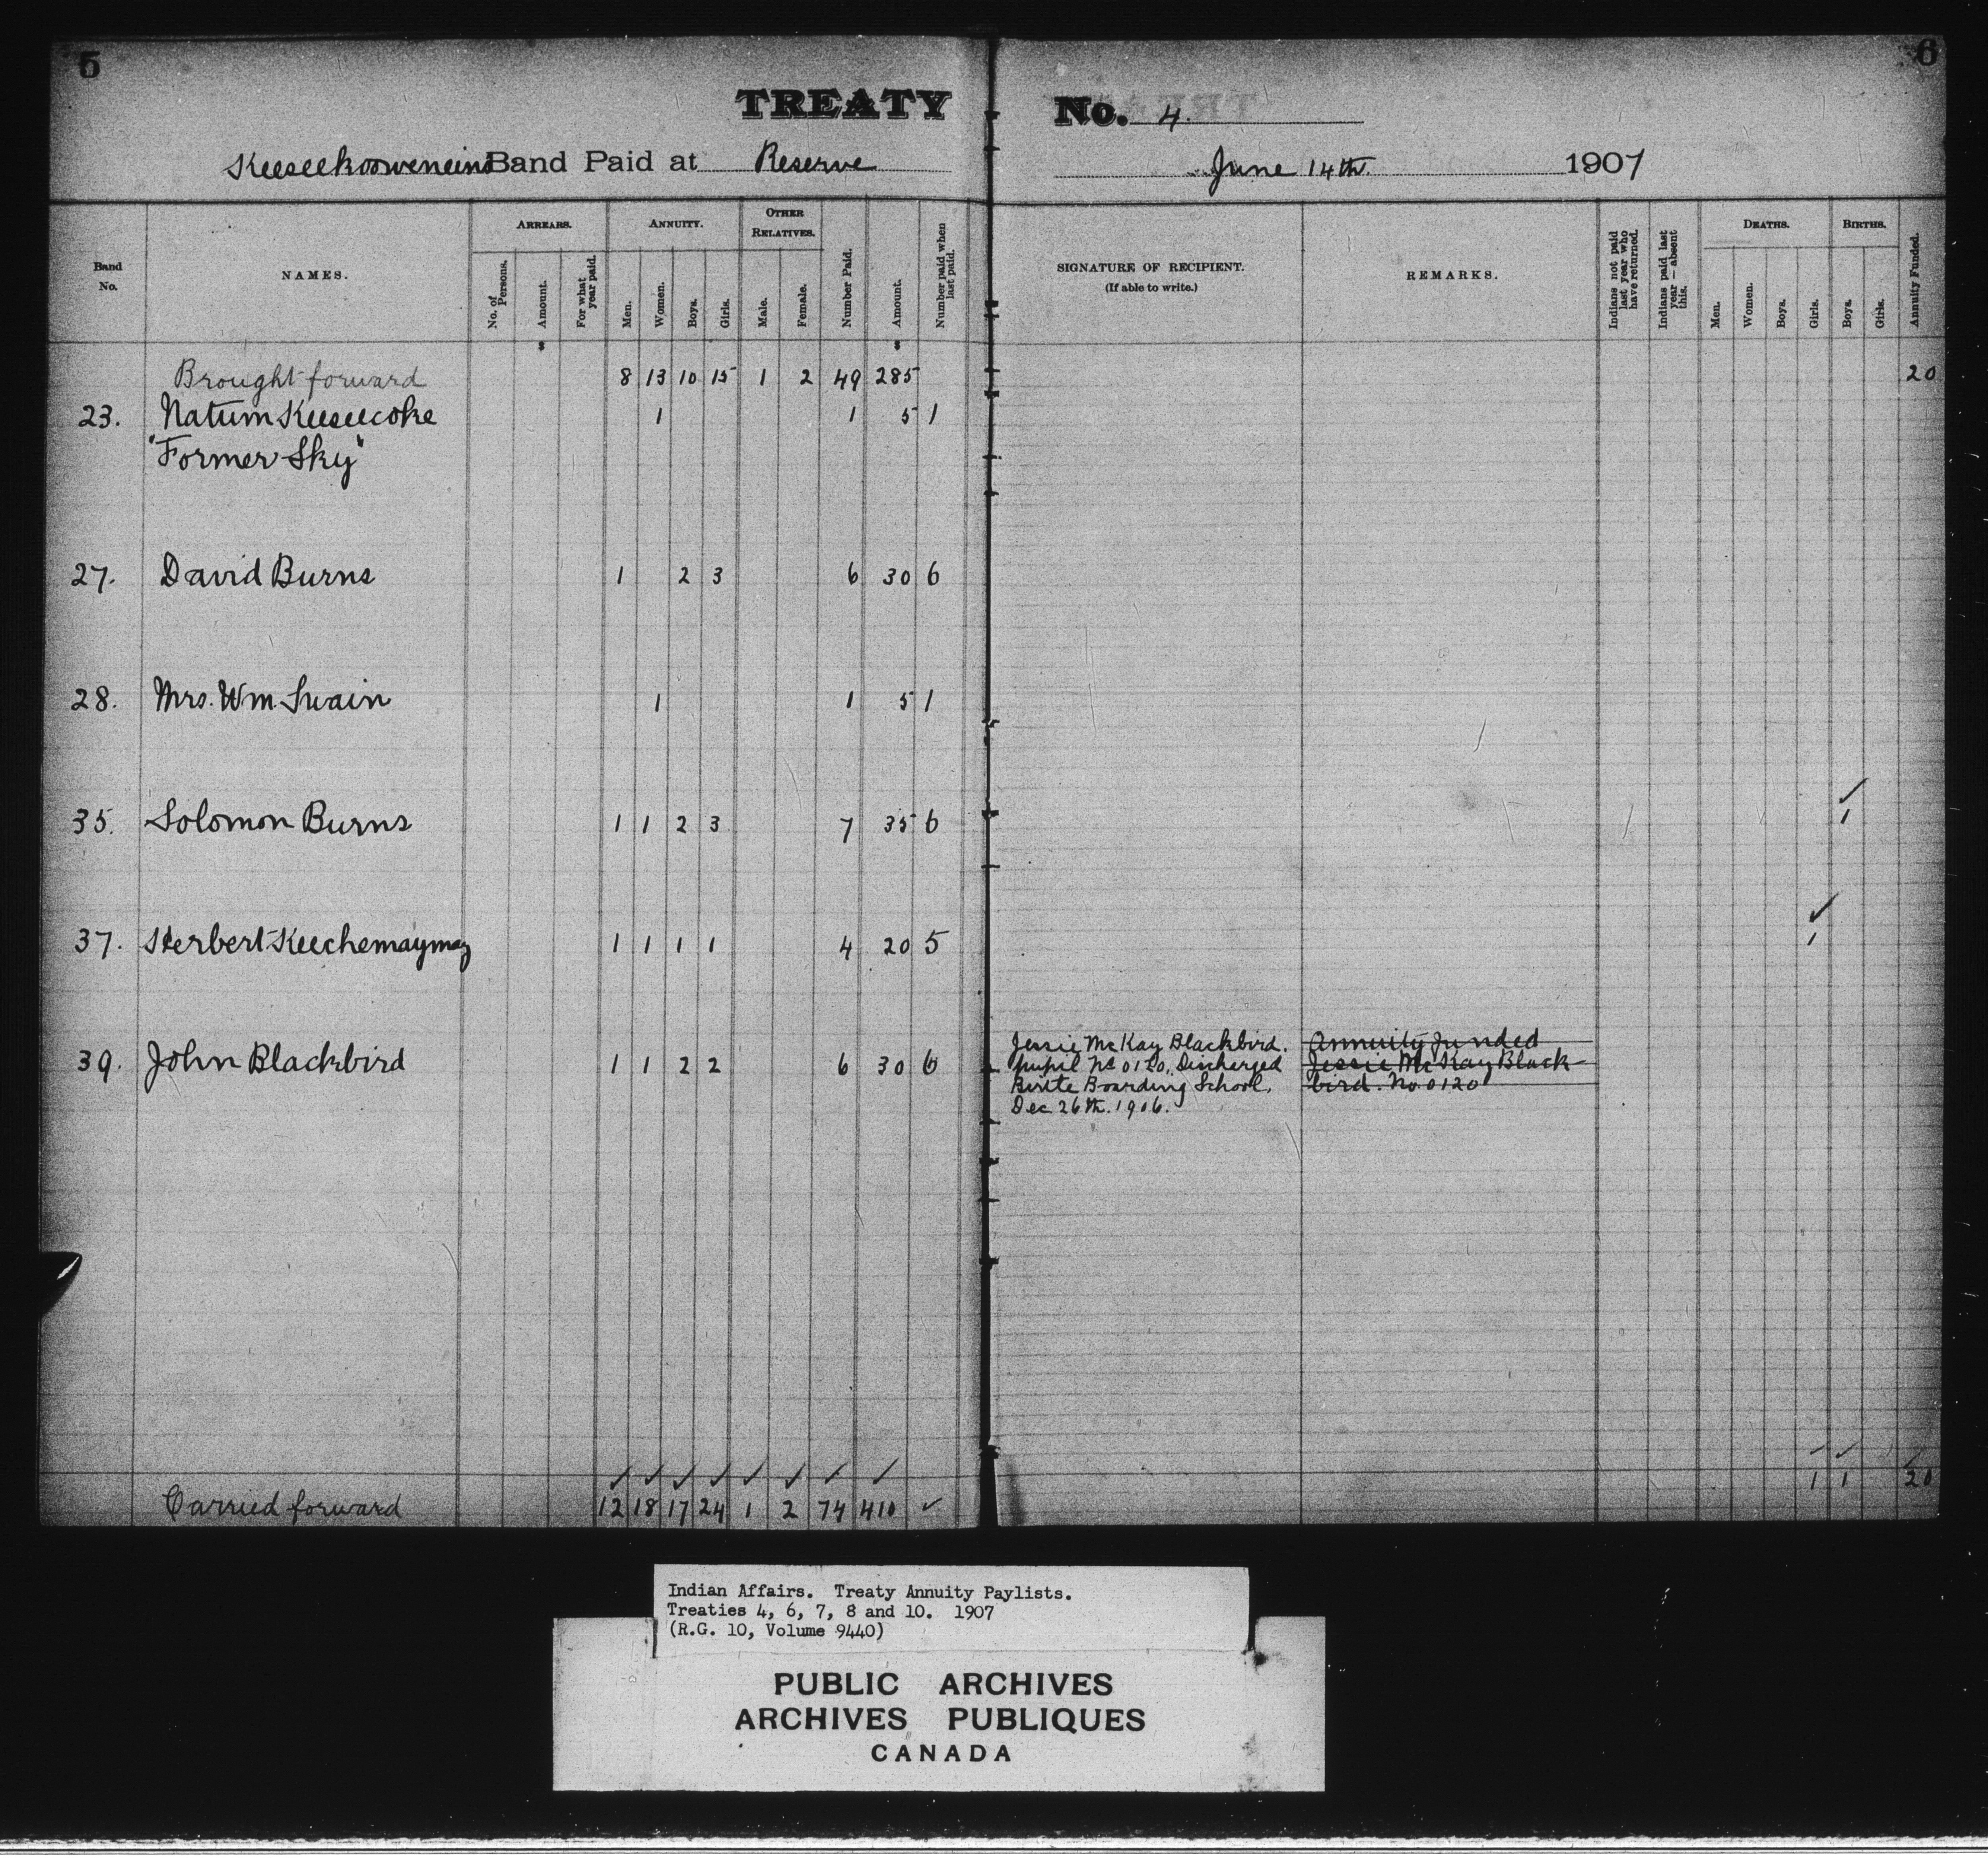 5
6
TREATY No. 4.
Keeseekoowenins Band Paid at Reserve June 14th. 1907
Band No.
NAMES.
ARREARS.
No. of Persons.
Amount.
For what year paid.
ANNUITY.
Men.
Women.
Boys.
Girls.
OTHER RELATIVES.
Male.
Female.
Number Paid.
Amount.
Number paid when last paid.
SIGNATURE OF RECIPIENT.
(If able to write.)
REMARKS.
Indians not paid last year who have returned.
Indians paid last year — absent this.
DEATHS.
Men.
Women.
Boys.
Girls.
BIRTHS.
Boys.
Girls.
Annuity Funded.
$ $
Brought forward 8 13 10 15 1 2 49 285 20
23. Natum Keeseecoke 1 1 5 1
"Former Sky"
27. David Burns 1 2 3 6 30 6
28. Mrs. Wm. Swain 1 1 5 1
35. Solomon Burns 1 1 2 3 7 35 6 ✓ 1
37. Herbert Keechemaymay 1 1 1 1 4 20 5 ✓ 1
39. John Blackbird 1 1 2 2 6 30 6
Jessie McKay Blackbird.
pupil No 0120, Discharged
Birtle Boarding School,
Dec 26th. 1906.
Annuity funded
Jessie McKay Black-
bird. No. 0120
✓ ✓ ✓ ✓ ✓ ✓ ✓ ✓ ✓ ✓ ✓
Carried forward 12 18 17 24 1 2 74 410 ✓ 1 1 20
Indian Affairs. Treaty Annuity Paylists.
Treaties 4, 6, 7, 8 and 10. 1907
(R.G. 10, Volume 9440)
PUBLIC ARCHIVES
ARCHIVES PUBLIQUES
CANADA